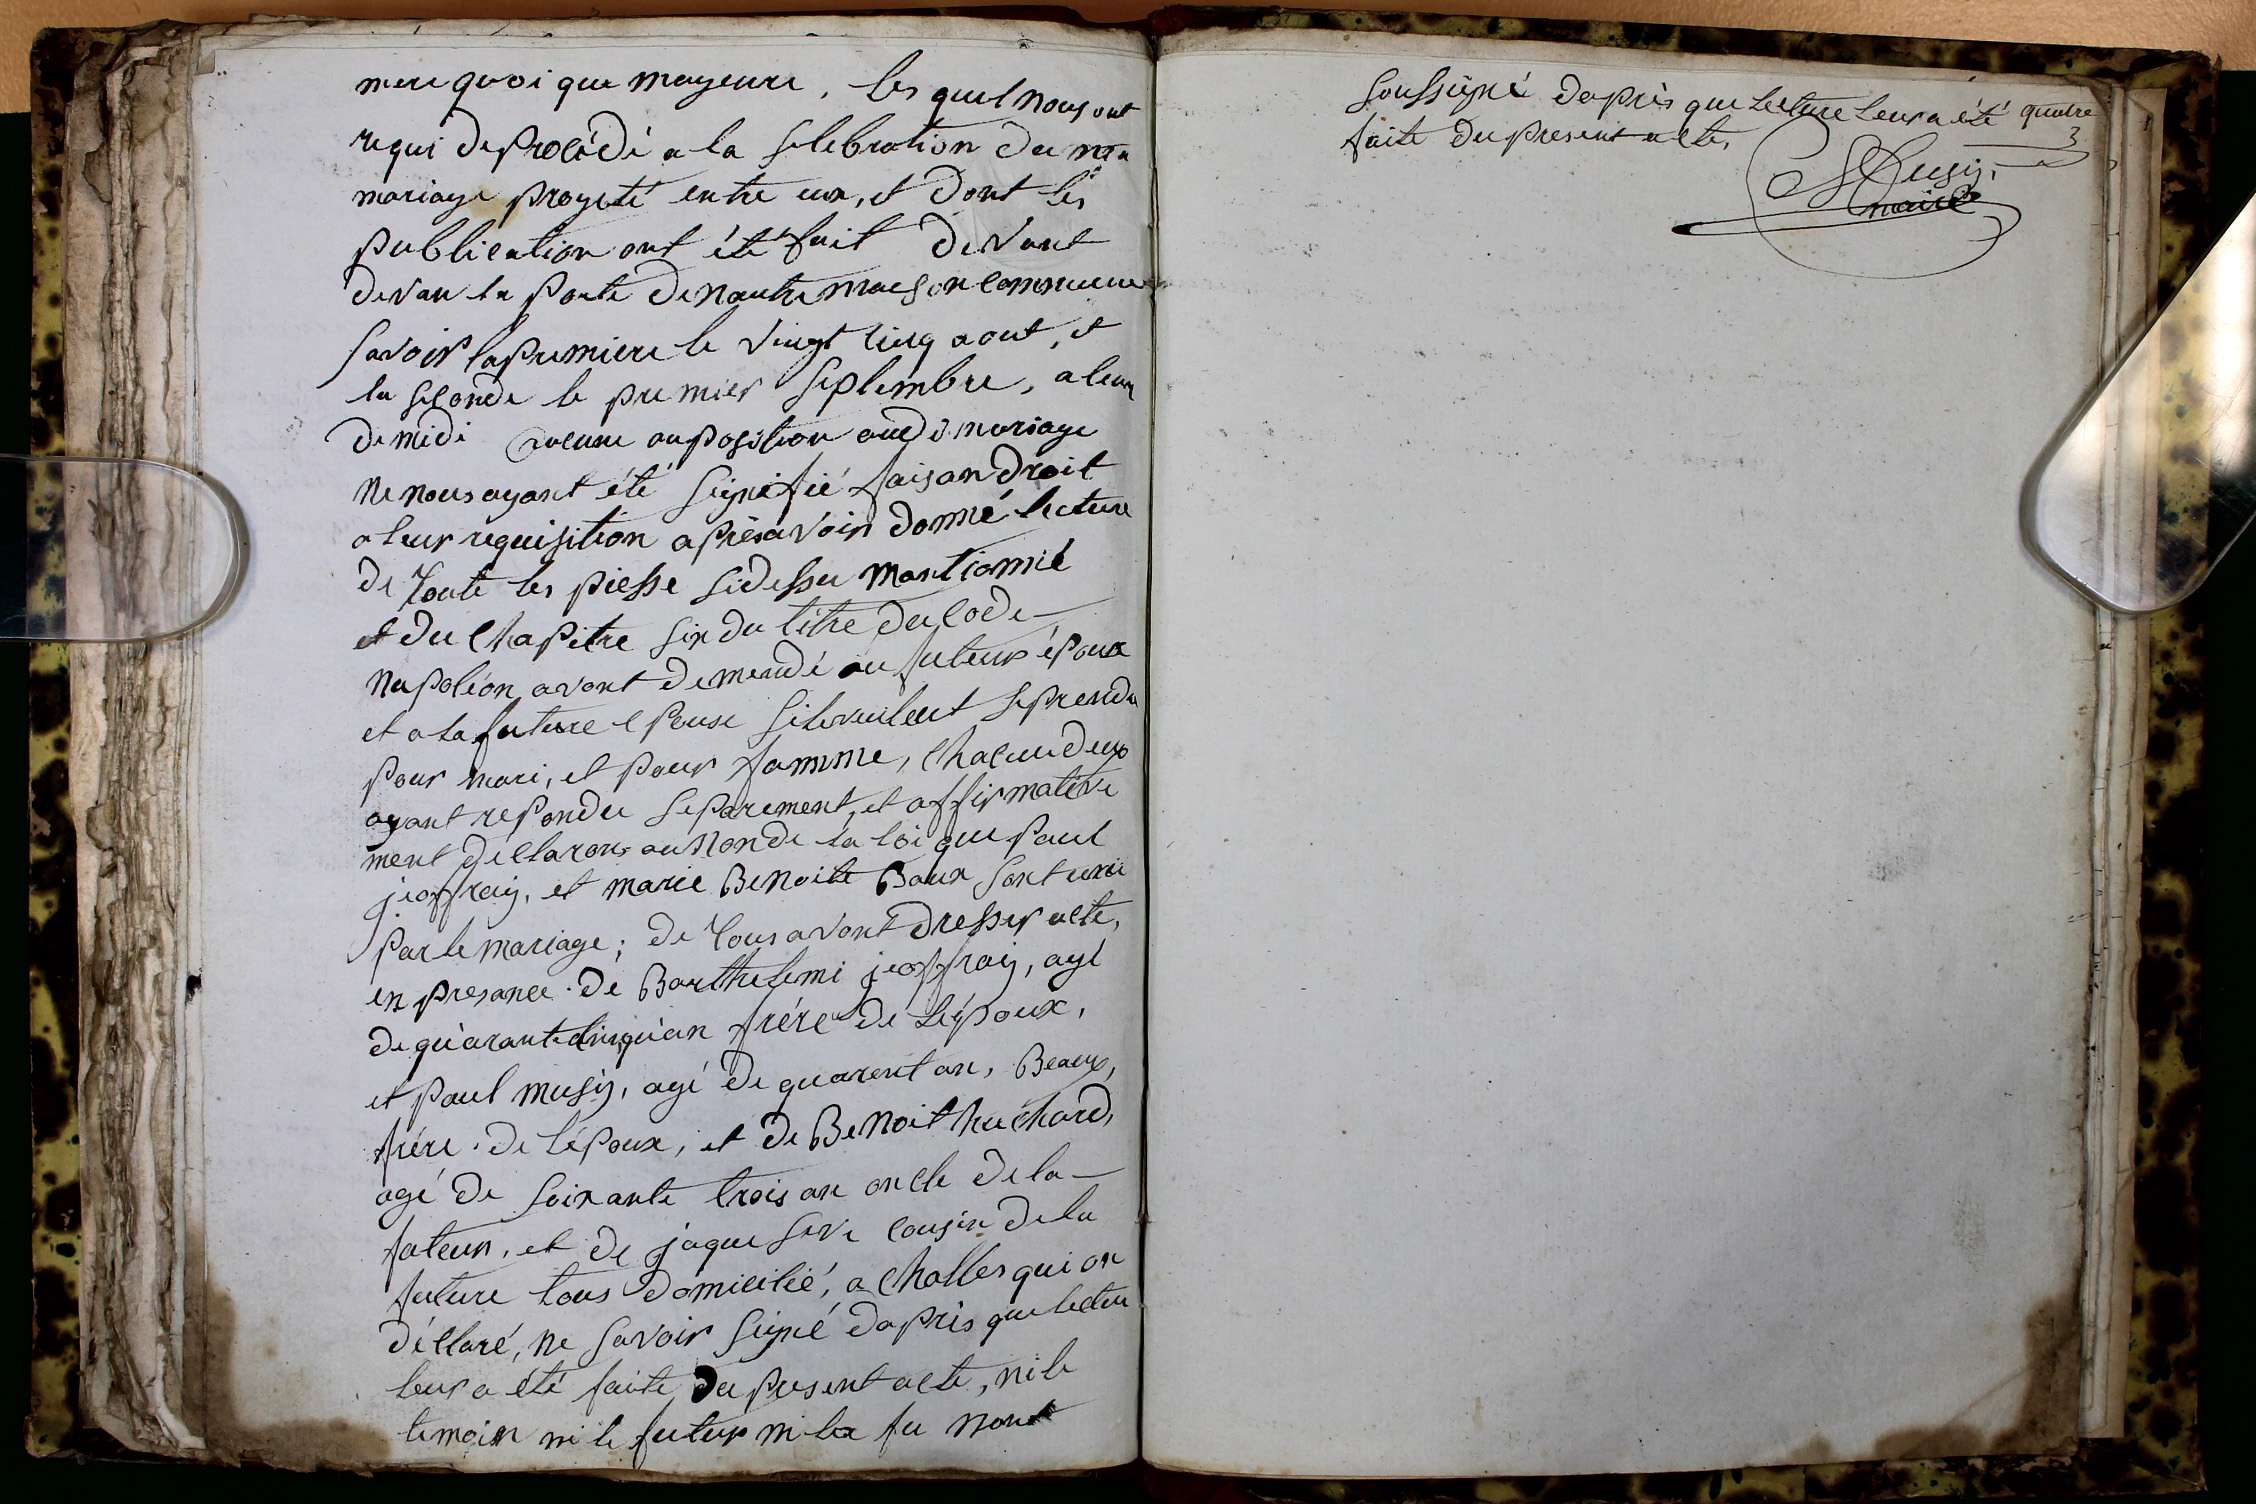 mere quoi que mayeure, les quel nous ont
requi de procédé a la selebration du
mariage progeté entre eux, et dont les
publication ont été fait devant
devan la porte de nautre maeson commune
savoir la premiere le vingt cinq aout, et
la seconde le premier septembre, a leur
de midi aucune auposition audi mariage
ne nous ayant été signifié faisan droit
a leur réquisition aprés avoir donné lecture
de toute les piesse sidessu mantionné
et du chapitre six du titre du code
napoléon avont demendé au futeur époux
et a la future epouse silveulent se prendre
pour mari, et pour famme, chacun deux
ayant repondu séparement, et affirmative
ment déclarons au nonde la loi que paul
jeoffray, et marie Benoite Baux sont uni
par le mariage; de tous avont dresser acte,
en presance de Barthelemi jeoffray, agé
de quarante cinq an frére de lépoux,
et paul musy, agé de quarent an, Beaux,
frére de lépoux, et de Benoit huchard,
agé de soixante trois an oncle de la
futeur, et de jaque seve cousin de la
future tous domicilié, a challes qui on
déclaré, ne savoir signé daprés que lectur
leur a été faite du present acte, ni le
temoin ni le futur ni la fu nont
soussigné daprès que lecture leur a été
faite du present acte,
quatre
3
Musy,
maire